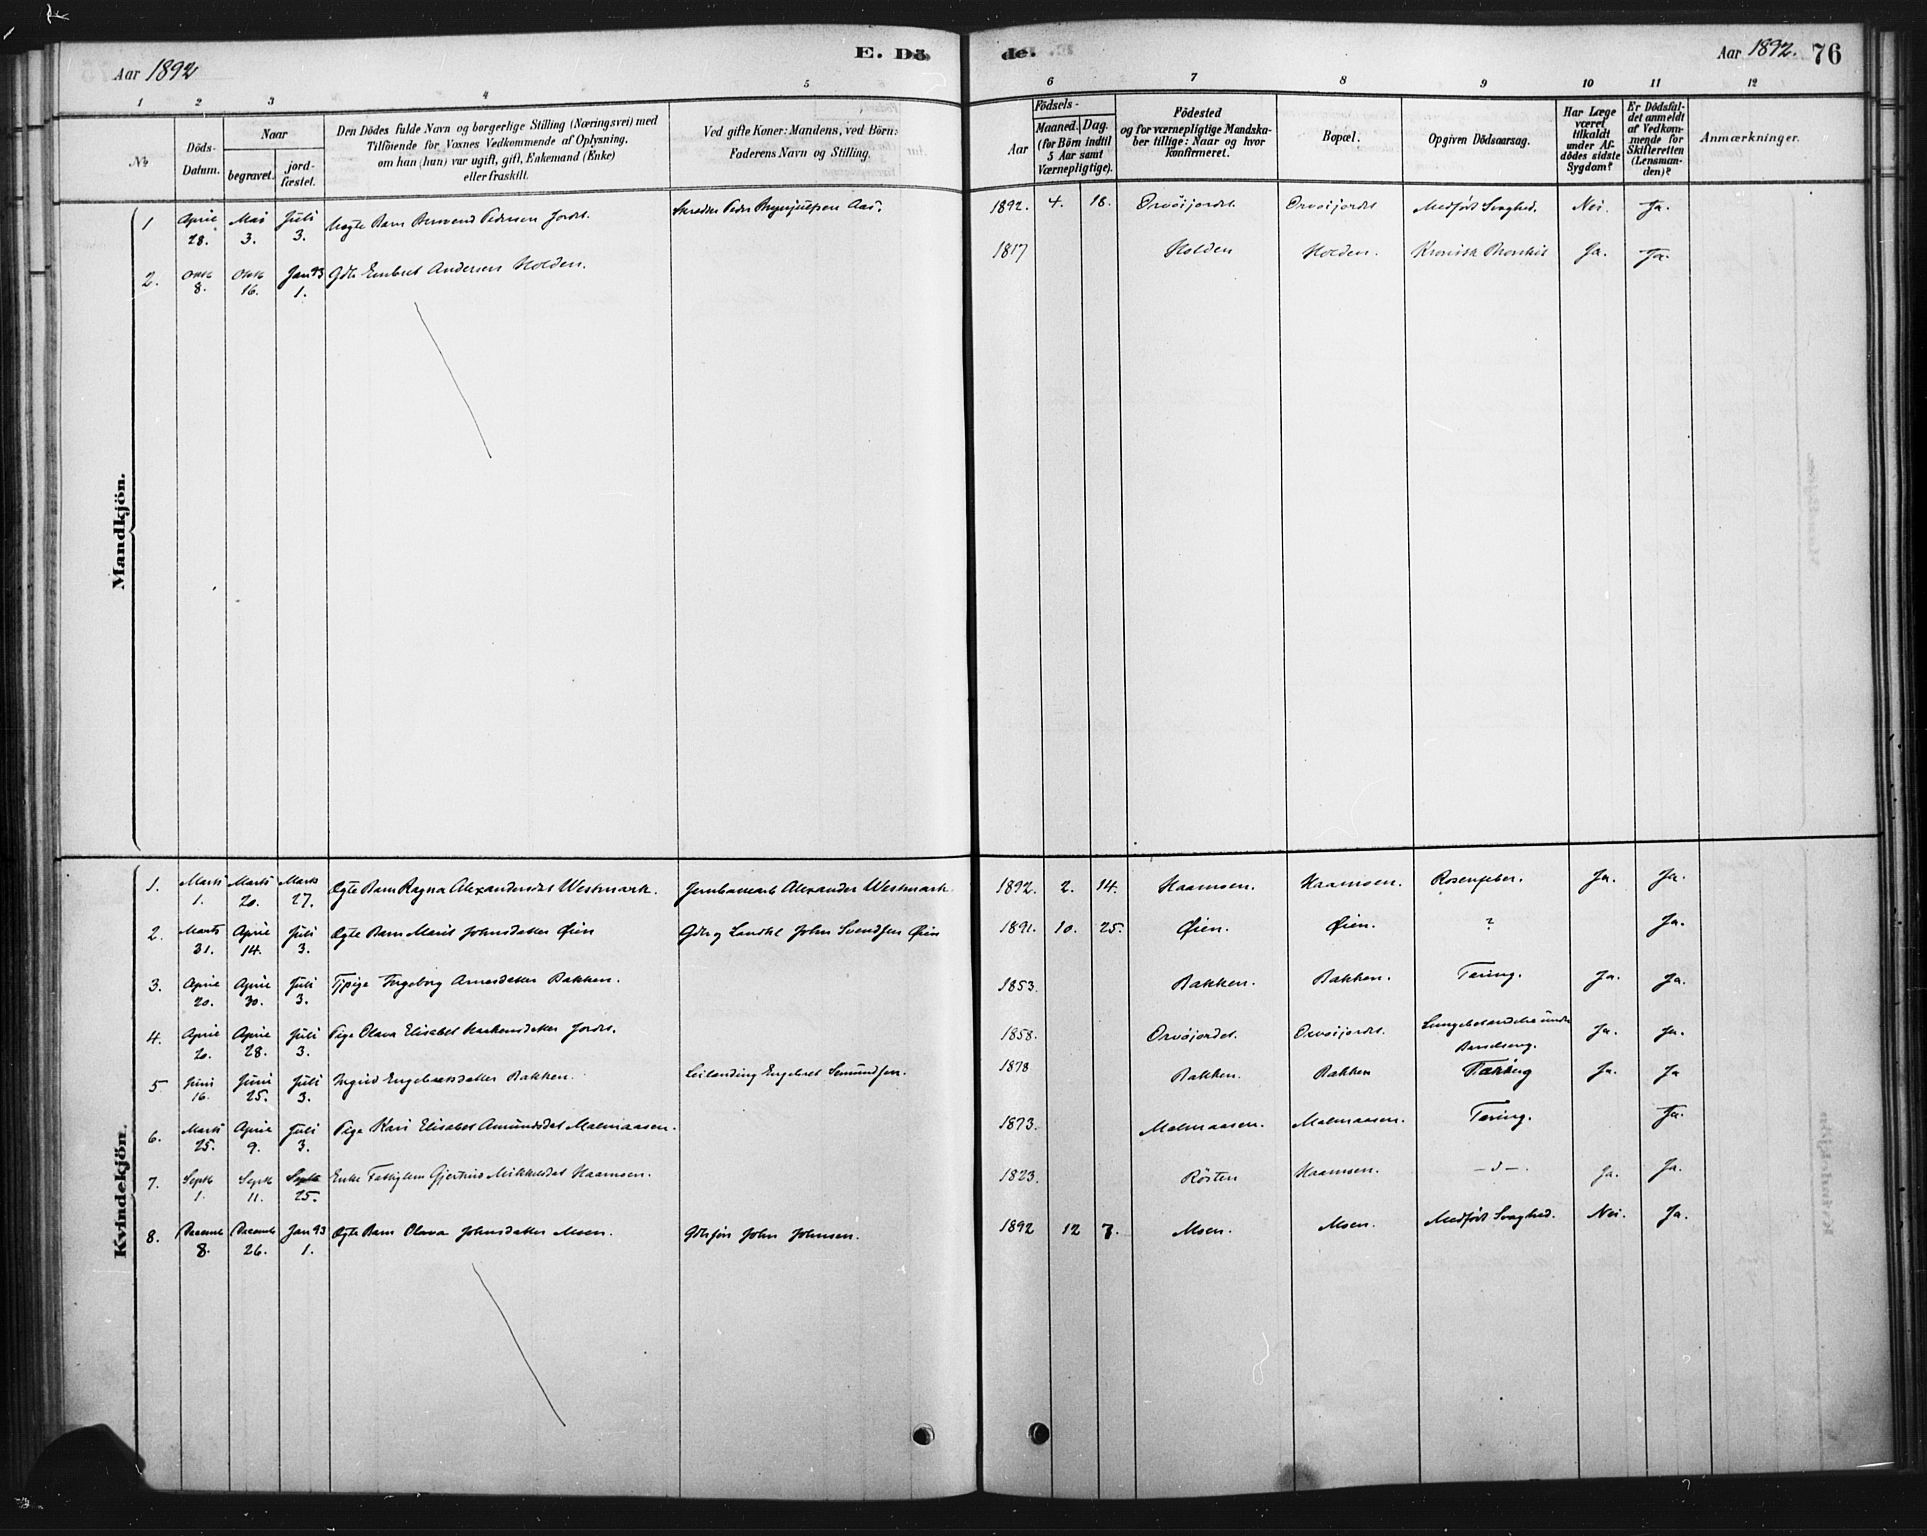 Aar 1892
E. Döde.
Aar 1892. 76
1 2 3 4 5 6 7 8 9 10 11 12
No
Döds-Datum.
Naar
begravet. jordfæstet.
Den Dödes fulde Navn og borgerlige Stilling (Næringsvei) med
Tilföiende for Voxnes Vedkommende af Oplysning,
om han (hun) var ugift, gift, Enkemand (Enke)
eller fraskilt.
Ved gifte Koner: Mandens, ved Börn:
Faderens Navn og Stilling.
Aar
Födsels-
Maaned. Dag.
(for Börn indtil
5 Aar samt
Værnepligtige).
Födested
og for værnepligtige Mandska-
ber tillige: Naar og hvor
konfirmeret.
Bopæl.
Opgiven Dödsaarsag.
Har Læge
været
tilkaldt
under Af-
dödes sidste
Sygdom?
Er Dödsfal-
det anmeldt
af Vedkom-
mende for
Skifteretten
(Lensman-
den)?
Anmærkninger.
Mandkjön.
1 April 28. Mai 3. Juli 3. Uægte Barn Pedersen Jordet. Peder Brynjulfsen Aas. 1892. 4. 18. Orvöijordet. Orvöijordet. Medfødt Svaghed. Nei. Ja.
2. Oktb 8. Oktb 16. Jan 93 1. Gdb Embret Andersen Holden. 1817 Holden Holden. Kronisk Bronkit Ja. Ja.
Kvindekjön.
1. Marts 1. Marts 20. Marts 27. Ægte Barn Ragna Alexandersdat Westmark. Alexander Westmark. 1892. 2. 14. Kaamoen. Kaamoen. Rosenfeber. Ja. Ja.
2. Marts 31. April 14. Juli 3. Ægte Barn Marit Johnsdatter Øien John Svendsen Øien 1891. 10. 25. Øien. Øien. ? Ja.
3. April 20. April 30. Juli 3. Tjpige Ingeborg Arnesdatter Bakken. 1853. Bakken. Bakken. Tæring. Ja. Ja.
4. April 20. April 28. Juli 3. Pige Olava Elisabet Jordet. 1858. Orvöijordet. Orvöijordet. Lungebetændelse under Barselseng. Ja. Ja.
5 Juni 16. Juni 25. Juli 3. Ingrid Engebretsdatter Bakken. Leilænding Engebret Semundsen. 1878 Bakken. Bakken Ja. Ja
6. Marts 25. April 9. Juli 3. Pige Kari Elisabet Amundsdat Malmaasen. 1873. Malmaasen. Malmaasen. Tæring. Ja.
7. Septb 1. Septb 11. Septb 25. Enke Fattiglem Gjertrud Mikkelsdat Kaamoen. 1823. Rösten Kaamoen. -d-. Ja. Ja.
8. Decemb 8. Decemb 26. Jan 93 1. Ægte Barn Olava Johnsdatter Moen. John Johnsen. 1892 12 7. Moen. Moen. Medfødt Svaghed. Nei. Ja.